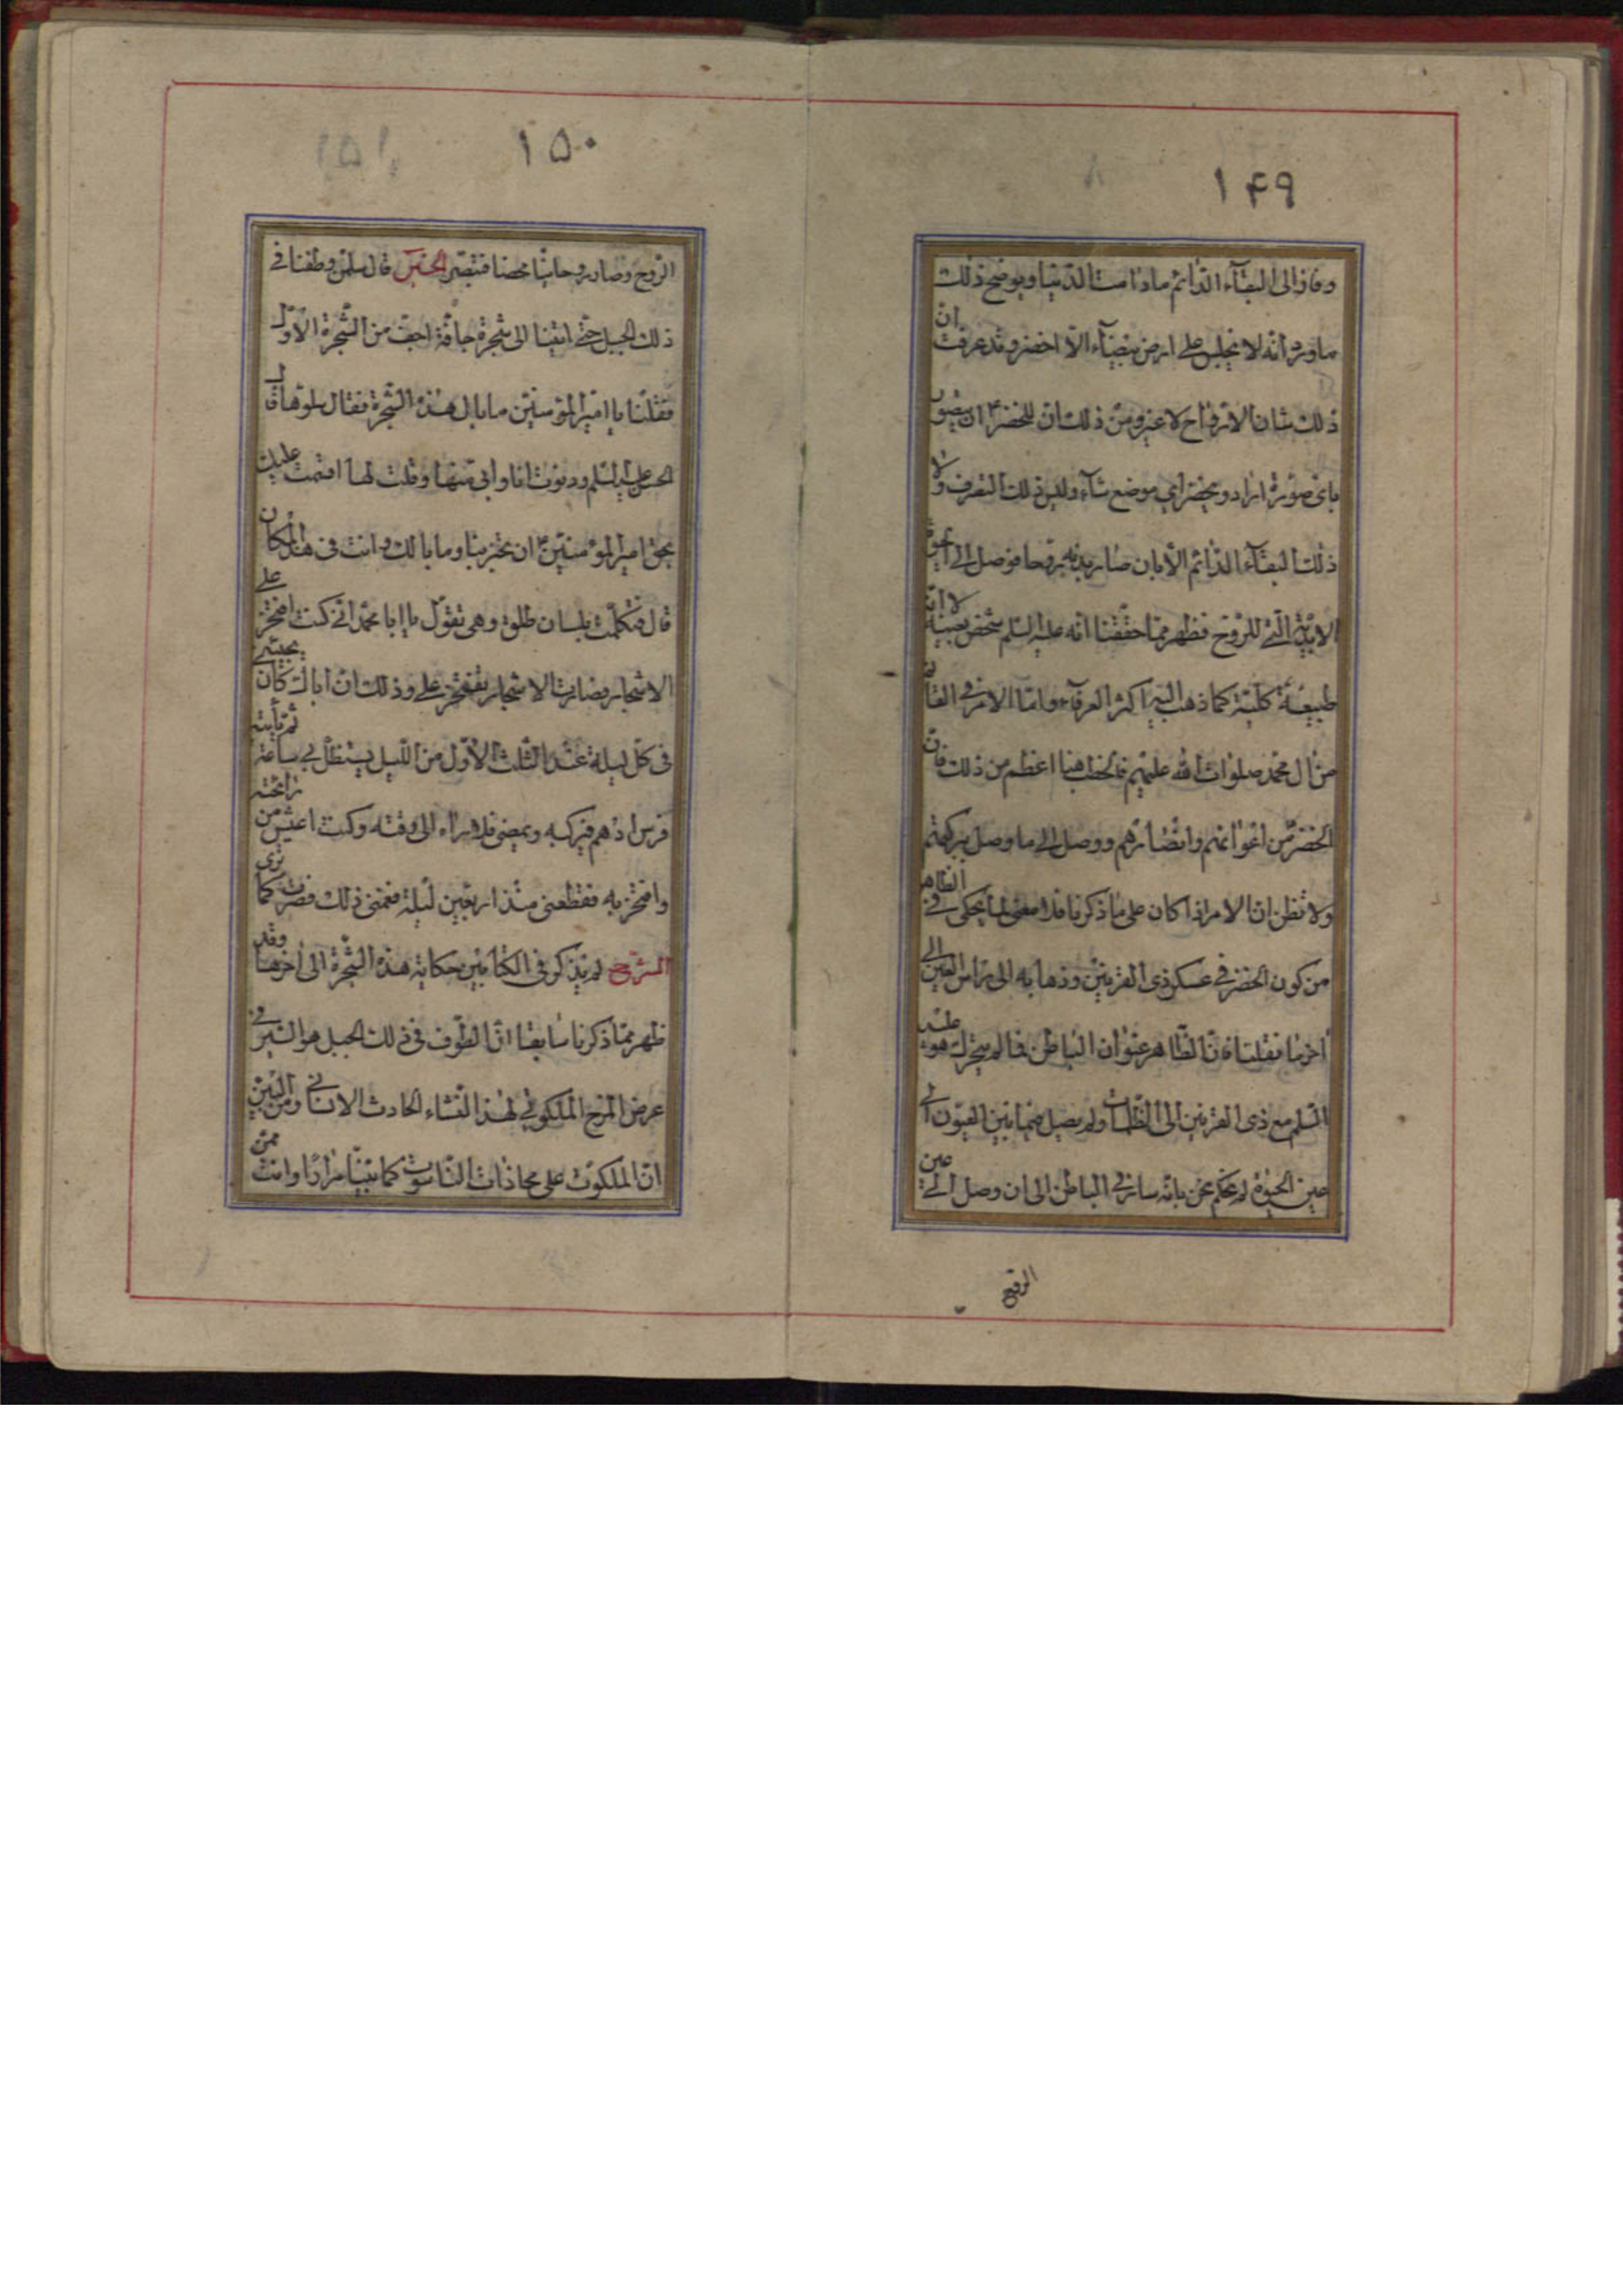 ١۴٩
وفاز الى البقآء الدّائم مادامت الدّنيا ويوضح ذلك
ما ورد انّه لا يجلس على ارض بيضآء الّا اخضر وقد عرفت انّ
ذلك شان الارواح لا غير ومن ذلك انّ للخضر ان يتصوّر
باىّ صورة اراد ويحضر اى موضع شآء وليس ذلك التصرف ولا
ذلك البقآء الدّائم الّا بان صار بدنه روحا فوصل الى
الابديّة الّتى للرّوح فظهر ممّا حقّقنا انّه عليه السّلم شخص بعينه لا انّه
طبيعة كليّة كما ذهب اليه اكثر العرفآء وامّا الامر فى القائم
من آل محمّد صلوات الله عليهم فالخطب هنا اعظم من ذلك فانّ
الخضر من اعوانهم وانصارهم ووصل الى ما وصل ببركتهم
ولا تظن انّ الامر اذا كان على ما ذكرنا فما معنى ما يحكى فى الظاهر
من كون الخضر فى عسكر ذى القرنين وذهابه الى راس العين الى
آخر ما نقلنا فانّ الظّاهر عنوان الباطن فما لم يتحرك هو عليه
السّلم مع ذى القرنين الى الظّلمات ولم يصل فيما بين العيون الى
عين الحيوة لم يحكم نحن بانّه سار فى الباطن الى ان وصل الى عين
الرّوح
١۵٠
الرّوح وصار روحانيّا محضا فتبصّر الخبر قال سلمن وطفنا فى
ذلك الجبل حتّى اتينا الى شجرة جافّة اجفّ من الشّجرة الاوّل
فقلنا يا امير المؤمنين ما بال هذه الشّجرة فقال سلوها قال
الحسن عليه السّلم ودنوت انا وابى منها وقلت لها اقسمت عليك
بحق امير المؤمنين ان تخبرينا وما بالك وانت فى هذا المكان
قال فتكلّمت بلسان طلق وهى تقول يا ابا محمّد انّى كنت افتخر على
الاشجار فصارت الاشجار تفتخر علىّ وذلك انّ اباك كان يجيئنى
فى كلّ ليلة عند الثّلث الاوّل من اللّيل يستظلّ بى ساعة ثم يأتيه
فرس ادهم فيركبه ويمضى فلا اراه الى وقته وكنت اعيش من رائحته
وافتخر به فقطعنى منذ اربعين ليلة فغمّنى ذلك فصرت كما ترى
الشّرح لم يذكر فى الكتابين حكاية هذه الشّجرة الى آخرها وقد
ظهر ممّا ذكرنا سابقا انّ الطّوف فى ذلك الجبل هو السّير فى
عرض البرزخ الملكوتى لهذا النّشاء الحادث الانسانى ومن البيّن
انّ الملكوت على محاذات النّاسوت كما بيّنّا مرارًا وانت ممّن